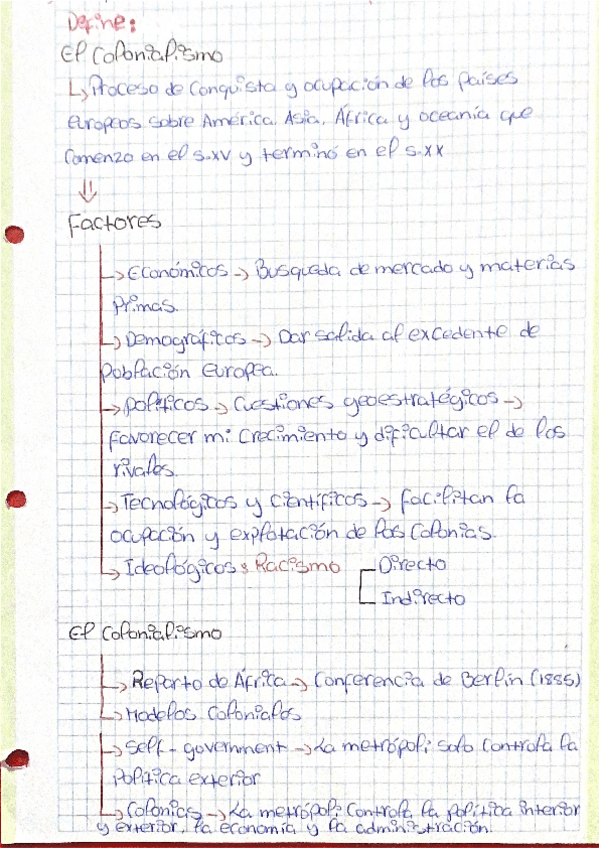 Define:
El Colonialismo
↳ Proceso de Conquista y ocupación de los países
europeos sobre América, Asia, África y oceanía que
Comenzo en el s.xv y terminó en el s.xx
⇓
Factores
↳ Económicos → Busqueda de mercado y materias
Primas.
↳ Demográficos → Dar salida al excedente de
Población Europea.
→ políticos → Cuestiones geoestratégicos →
favorecer mi Crecimiento y dificultar el de los
rivales.
→ Tecnológicos y Científicos → facilitan la
ocupación y explotación de las Colonias.
↳ Ideológicos: Racismo
Directo
Indirecto
El Colonialismo
↳ Reparto de África → Conferencia de Berlín (1885)
↳ Modelos Coloniales
↳ Self-government → La metrópoli solo Controla la
Política exterior
↳ Colonias → La metrópoli Controla la política interior
y exterior, la economía y la administración.